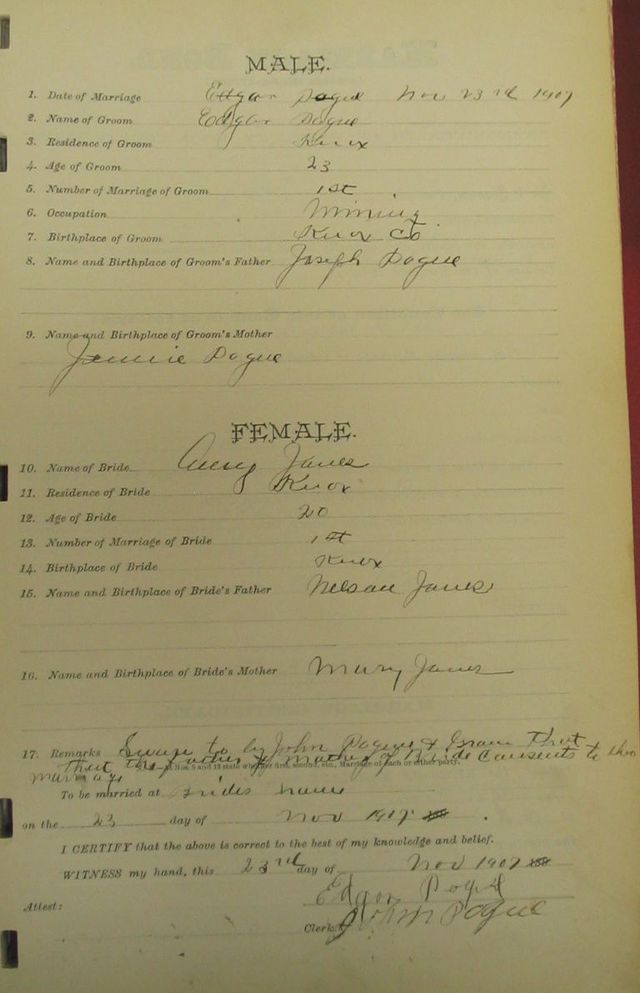 MALE.
1. Date of Marriage Edgar Pogue Nov 23rd 1907
2. Name of Groom Edgar Pogue
3. Residence of Groom Knox
4. Age of Groom 23
5. Number of Marriage of Groom 1st
6. Occupation Mining
7. Birthplace of Groom Knox Co
8. Name and Birthplace of Groom's Father Joseph Pogue
9. Name and Birthplace of Groom's Mother
Jennie Pogue
FEMALE.
10. Name of Bride Jones
11. Residence of Bride Knox
12. Age of Bride 20
13. Number of Marriage of Bride 1st
14. Birthplace of Bride Knox
15. Name and Birthplace of Bride's Father Nelson Jones
16. Name and Birthplace of Bride's Mother Mary Jones
17. Remarks Swore to by John Pogue & that
that the father & mother of Bride Consents to this
marriage
To be married at Brides home
on the 23 day of Nov 1907
I CERTIFY that the above is correct to the best of my knowledge and belief.
WITNESS my hand, this 23rd day of Nov 1907
Edgar Pogue
Attest:
Clerk. John Pogue